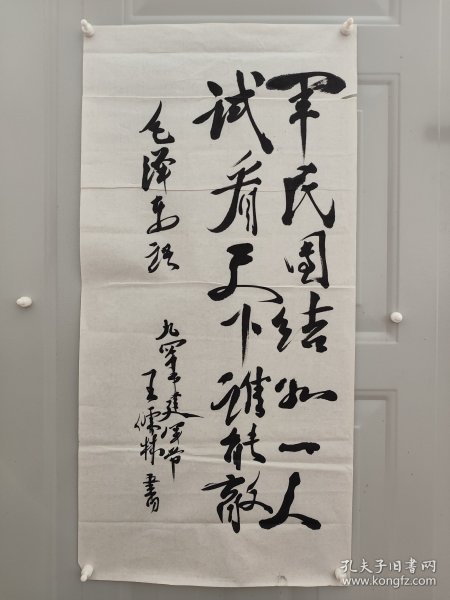 军民团结如一人
试看天下谁能敌
毛泽东语
九四年建军节
王儒林书
孔夫子旧书网
www.kongfz.com